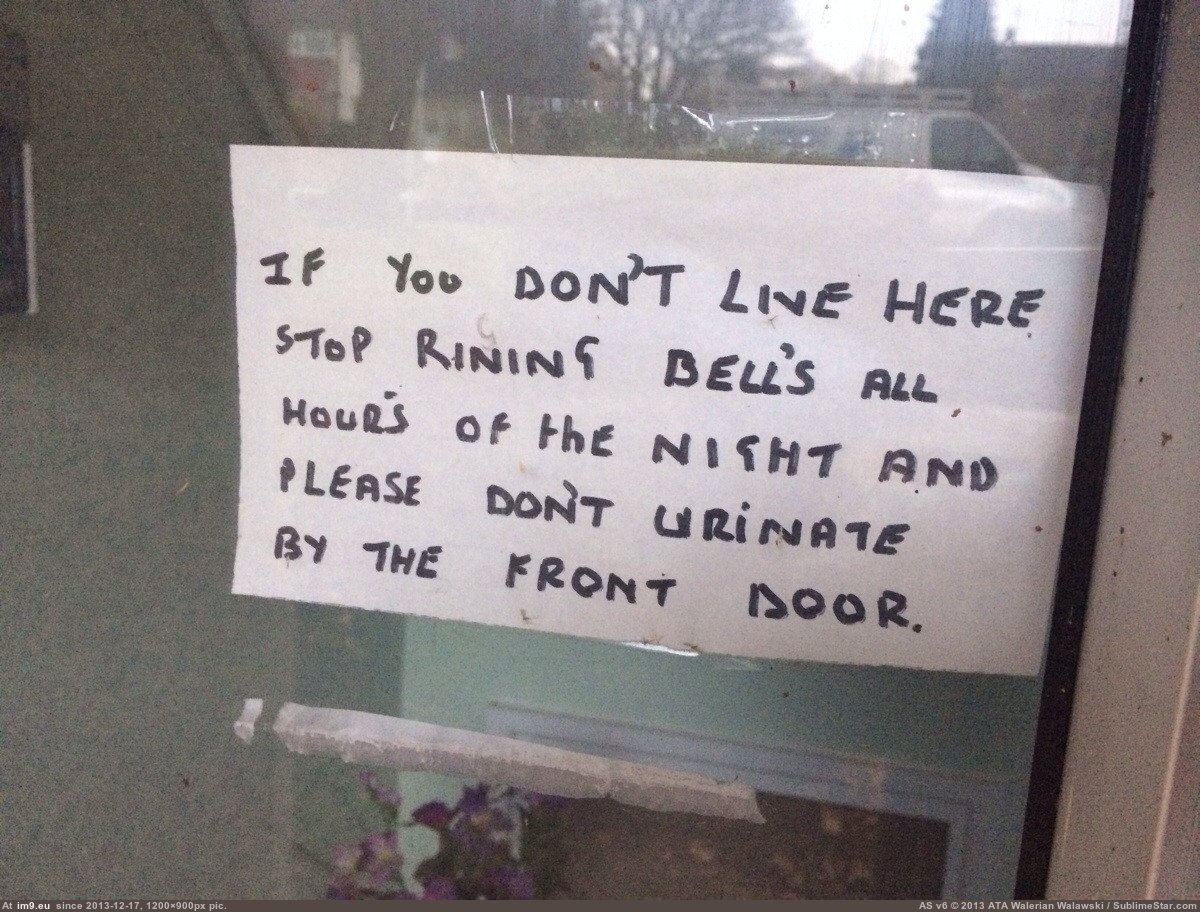 IF YOU DON'T LIVE HERE
STOP RINING BELL'S ALL
HOUR'S OF thE NIGHT AND
PLEASE DON'T URiNATE
BY THE FRONT DOOR.
At im9.eu since 2013-12-17, 1200×900px pic.
AS v6 © 2013 ATA Walerian Walawski / SublimeStar.com